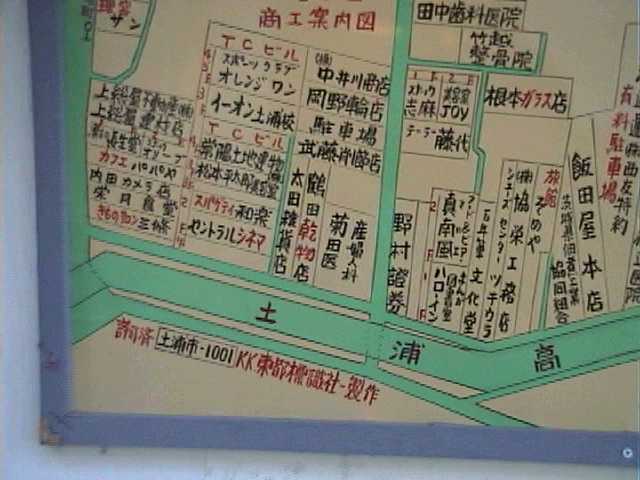 商工案内図
田中歯科医院
竹越
整骨院
サン
TCビル
スポーツクラブ
オレンジワン
イーオン土浦校
TCビル
常陽土地建物
スパゲティ和楽
セントラルシネマ
(株)中井川商店
岡野輪店
駐車場
武藤商店
太田雑貨店
鶴田乾物店
菊田医
産婦人科
上総屋不動産(株)
上総屋建材店
カフェ パパヤ
内田カメラ店
きものサロン三條
志麻
JOY
テーラー藤代
根本ガラス店
有料駐車場
野村證券
真南風
ハローイン
文化堂
シューズセンターツチウラ
(株)協栄工務店
旅館
そめや
茨城県佃煮工業
協同組合
飯田屋本店
土浦高
許可済 土浦市-1001 KK東都標識社-製作